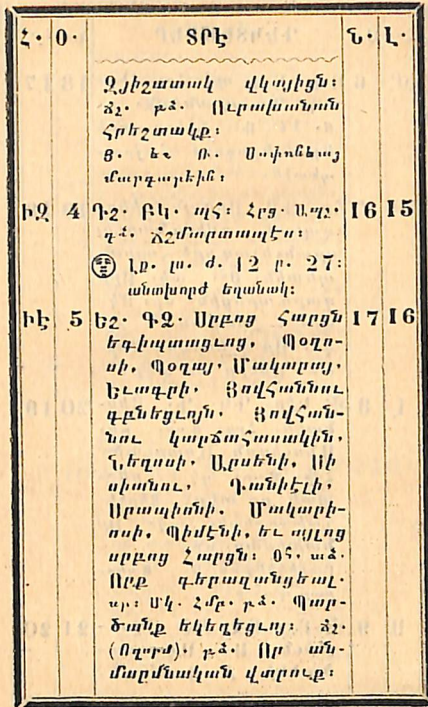 Հ· Օ· ՏՐԷ Ն· Լ·
Զյիշատակ վկայիցն։
ճշ· բձ· Ուրախանան
Հրեշտակք։
Յ· եւ Ռ· Սոփոնեայ
մարգարէին։
ԻԶ 4 Դշ· ԲԿ· պՀ։ Հրց· Ապշ· 16 15
գձ· Ճշմարտապէս։
Լք· լս· ժ· 12 ր· 27։
անտխորժ եղանակ։
ԻԷ 5 Եշ· ԳՁ· Սրբոց Հարցն 17 16
եգիպտացւոց, Պօղո-
սի, Պօղայ, Մակարայ,
Եւագրի, Յովհաննու
գբնեցւոյն, Յովհան-
նու կարճահասակին,
Նեղոսի, Արսենի, Սի
սիանու, Դանիէլի,
Սրապիոնի, Մակարի-
ոսի, Պիմէնի, եւ այլոց
սրբոց Հարցն։ Օհ· աձ·
Որք գերազանցեալ·
սր։ Մկ· Հմբ· բձ· Պար-
ծանք եկեղեցւոյ։ ճշ·
(Ողորմ)· բձ· Որ ան-
մարմնական վտրուք։